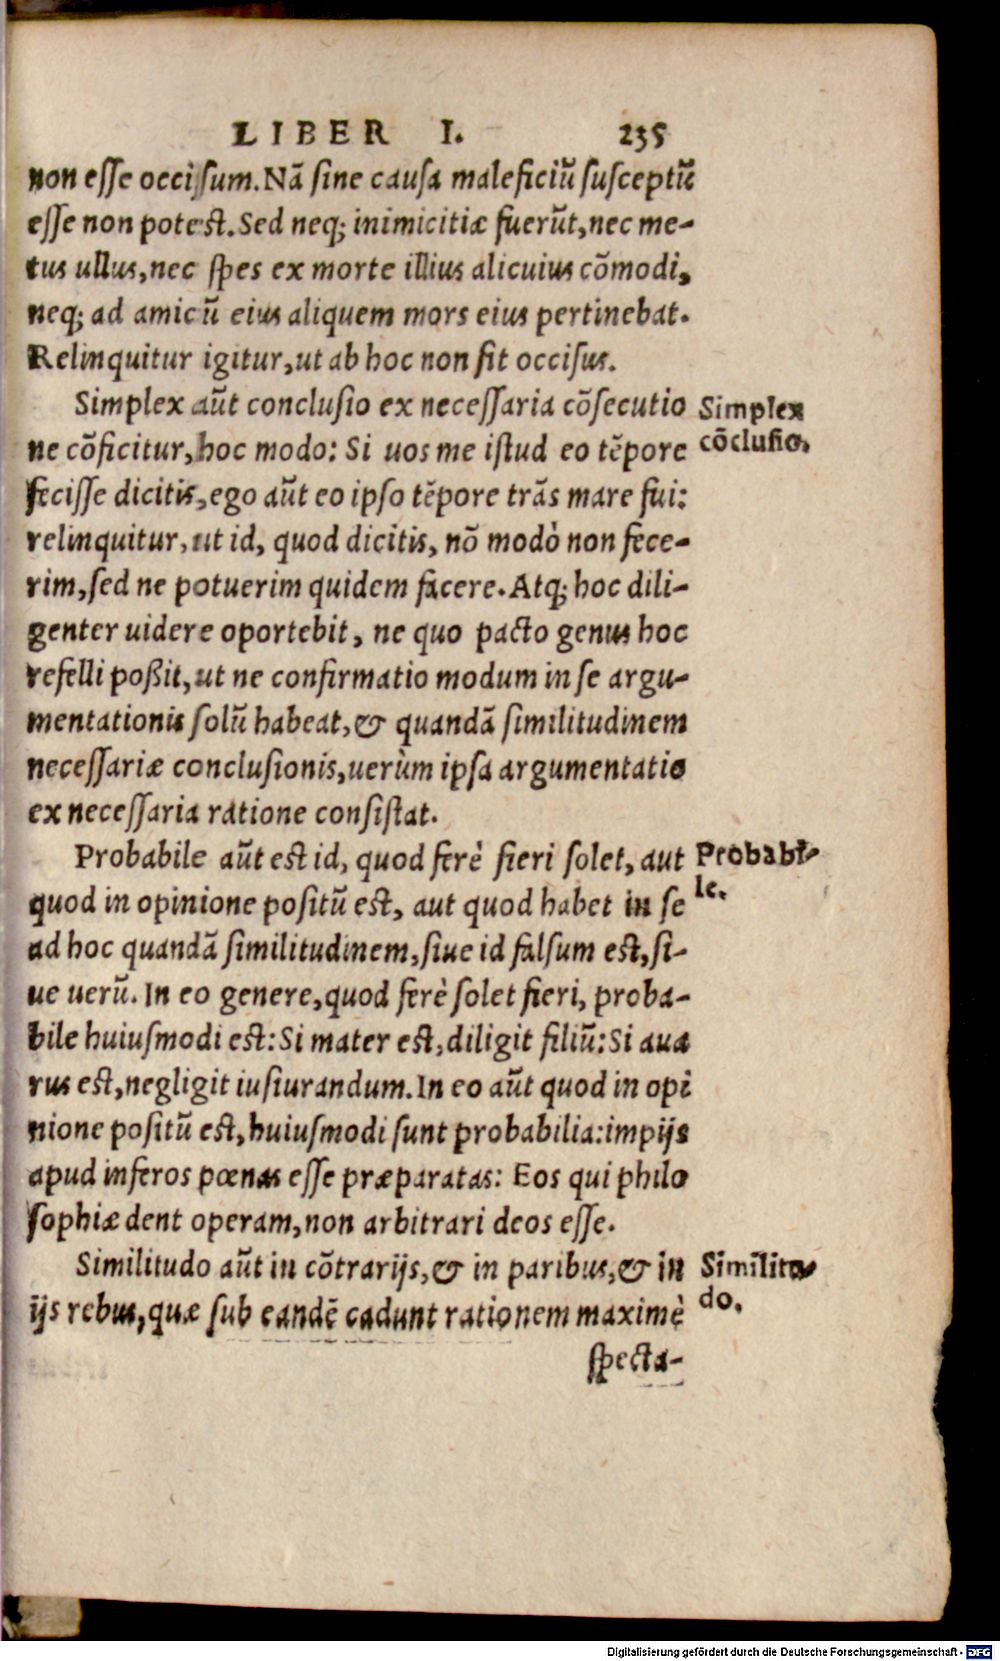 LIBER I. 235
non esse occisum. Nã sine causa maleficiũ susceptũ
esse non potest. Sed neq; inimicitiæ fuerũt, nec me-
tus ullus, nec spes ex morte illius alicuius cõmodi,
neq; ad amicũ eius aliquem mors eius pertinebat.
Relinquitur igitur, ut ab hoc non sit occisus.
Simplex aũt conclusio ex necessaria cõsecutio
Simplex
ne cõficitur, hoc modo: Si uos me istud eo tẽpore
cõclusio.
fecisse dicitis, ego aũt eo ipso tẽpore trãs mare fui:
relinquitur, ut id, quod dicitis, nõ modò non fece-
rim, sed ne potuerim quidem facere. Atq; hoc dili-
genter uidere oportebit, ne quo pacto genus hoc
refelli poßit, ut ne confirmatio modum in se argu-
mentationis solũ habeat, & quandã similitudinem
necessariæ conclusionis, uerùm ipsa argumentatio
ex necessaria ratione consistat.
Probabile aũt est id, quod ferè fieri solet, aut
Probabi-
quod in opinione positũ est, aut quod habet in se
le.
ad hoc quandã similitudinem, siue id falsum est, si-
ue uerũ. In eo genere, quod ferè solet fieri, proba-
bile huiusmodi est: Si mater est, diligit filiũ: Si aua
rus est, negligit iusiurandum. In eo aũt quod in opi
nione positũ est, huiusmodi sunt probabilia: impijs
apud inferos pœnas esse præparatas: Eos qui philo
sophiæ dent operam, non arbitrari deos esse.
Similitudo aũt in cõtrarijs, & in paribus, & in
Similitu-
ijs rebus, quæ sub eandẽ cadunt rationem maximè
do.
specta-
Digitalisierung gefördert durch die Deutsche Forschungsgemeinschaft - DFG